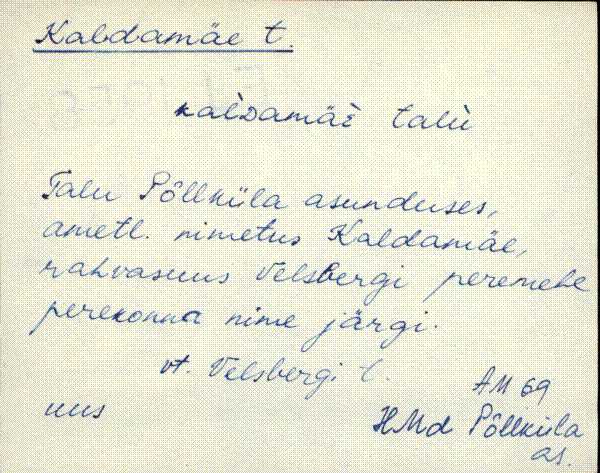 Kaldamäe t.
kaldamäè talù
Talu Põllküla asunduses,
ametl. nimetus Kaldamäe,
rahvasuus Velsbergi peremehe
perekonna nime järgi.
vt. Velsbergi t.
AM 69
uus
HMd Põllküla
as.